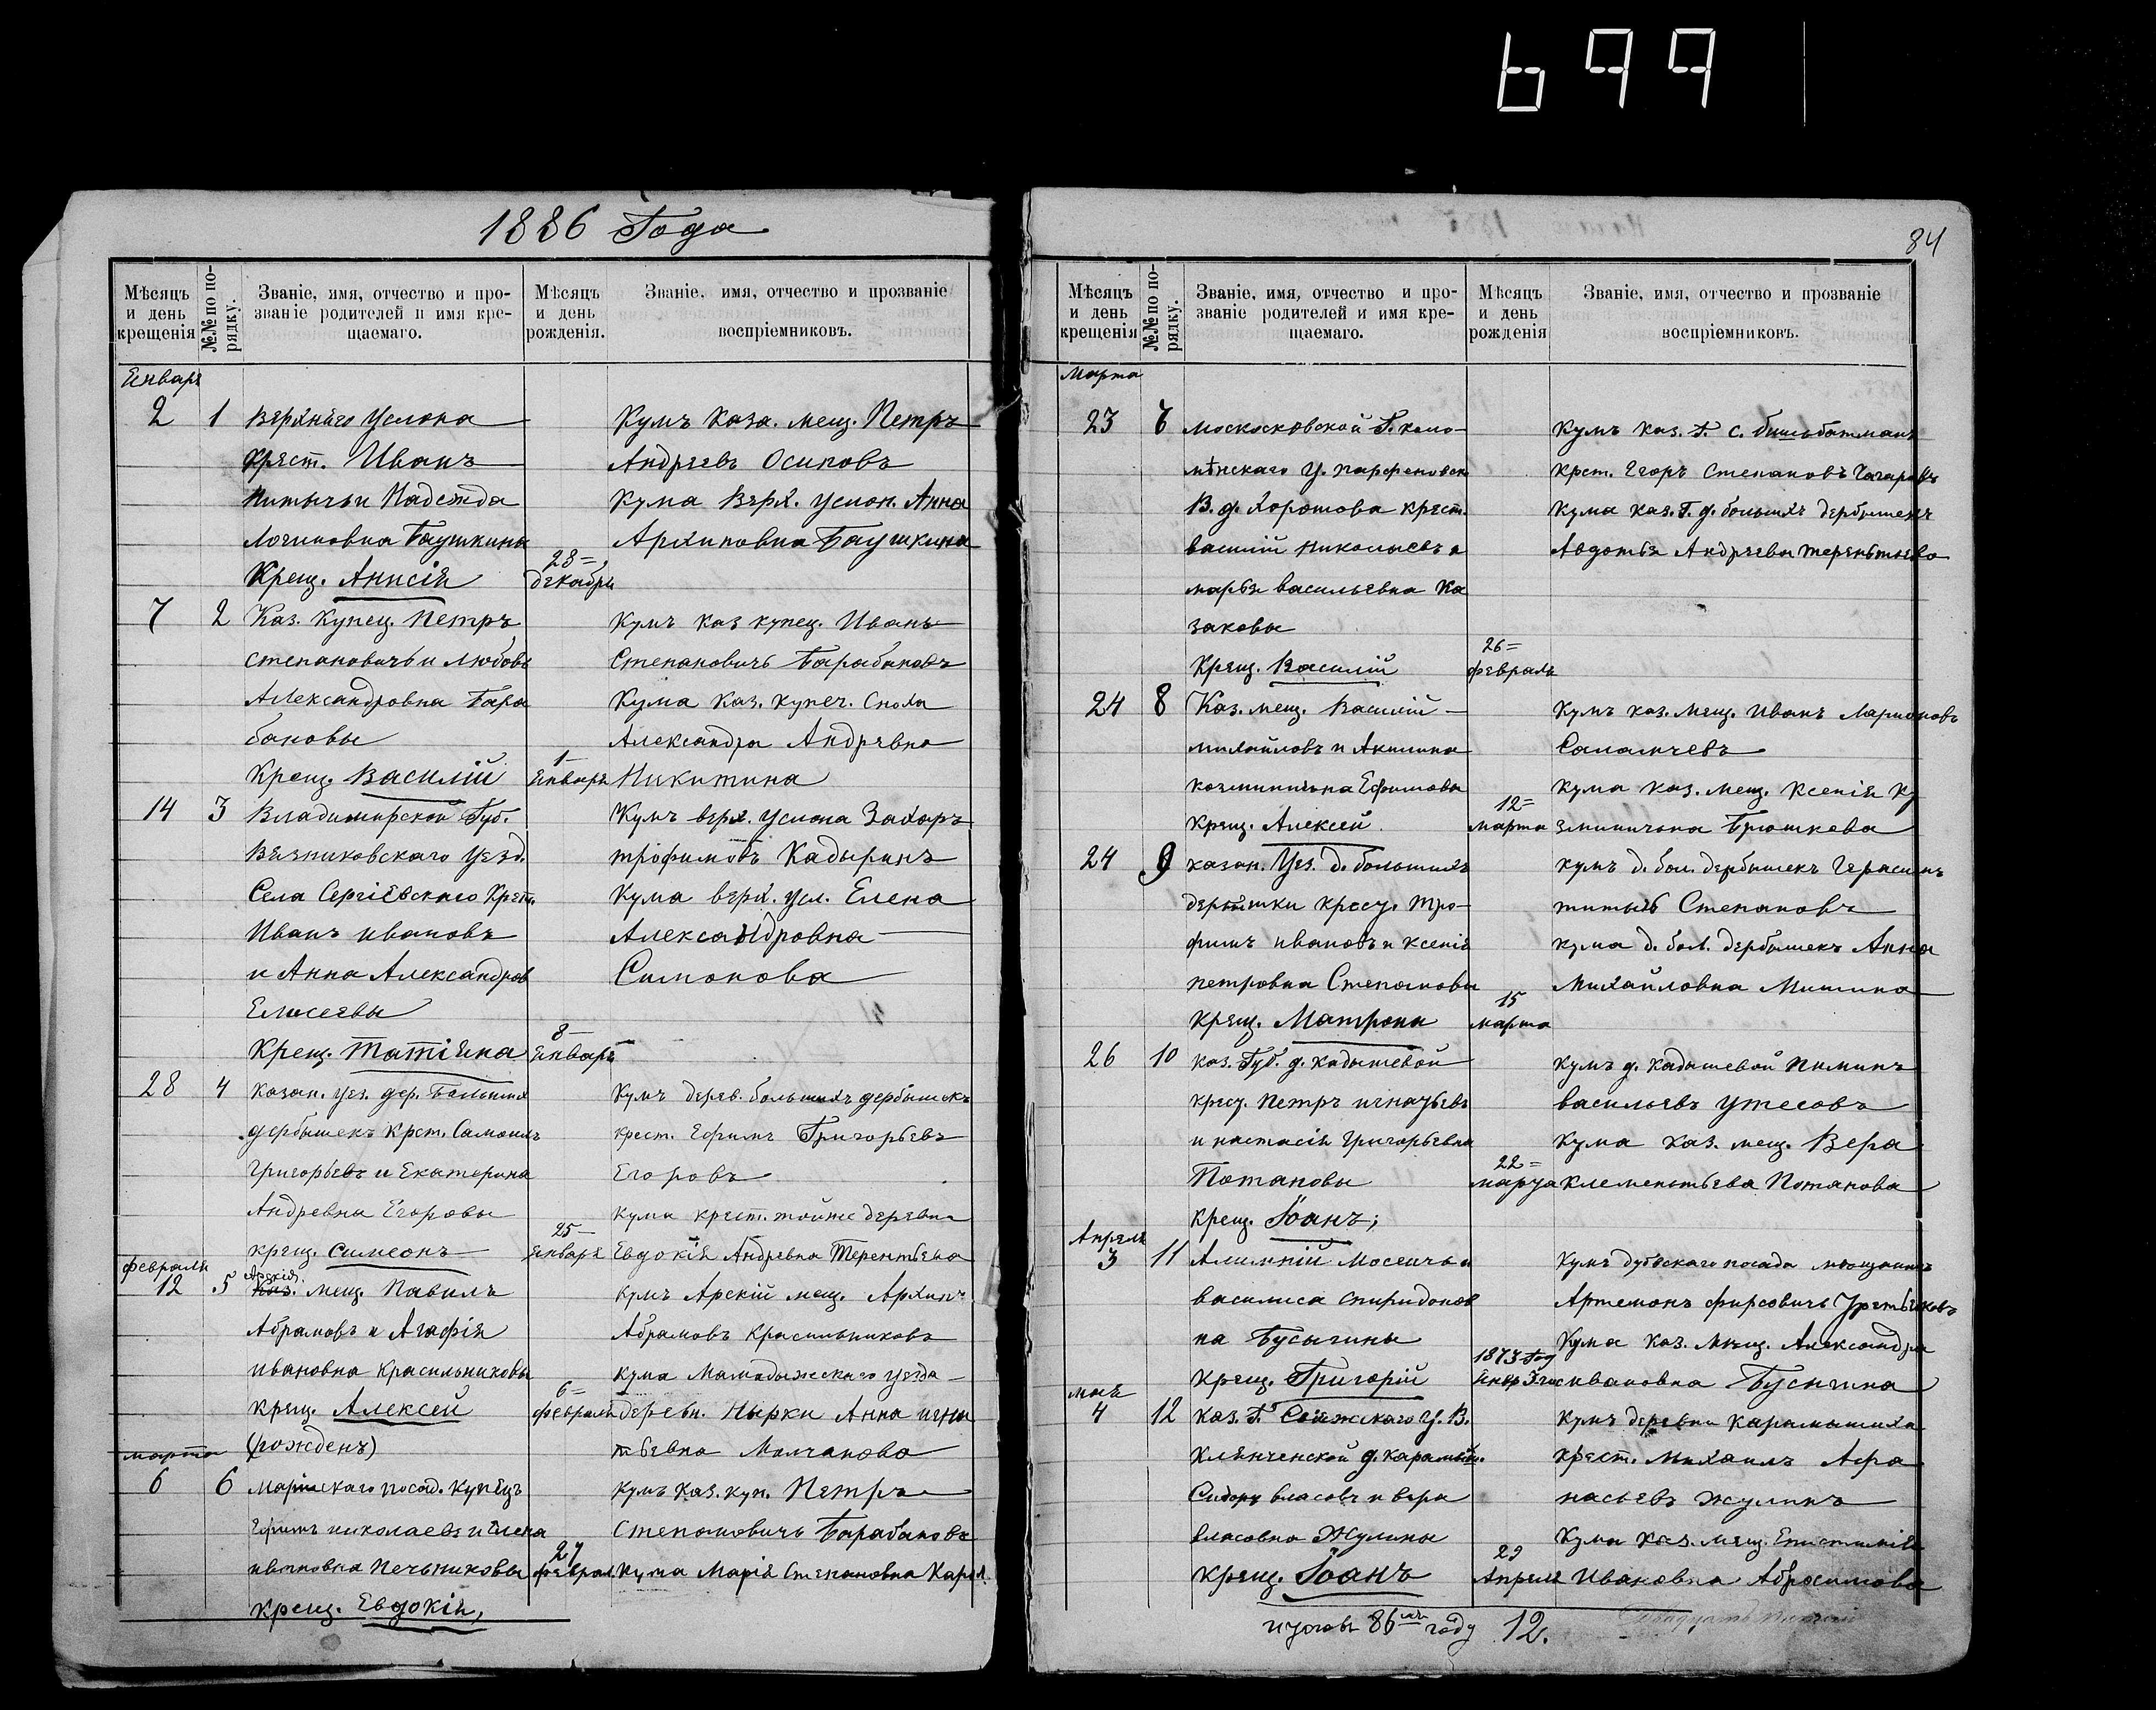 699
1886 Года
84
Мѣсяцъ и день крещенія
№№ по порядку.
Званіе, имя, отчество и прозваніе родителей и имя крещаемаго.
Мѣсяцъ и день рожденія.
Званіе, имя, отчество и прозваніе воспріемниковъ.
Енваря
2 1 Верхняго Услона
Крест. Иванъ
Титычь и Надежда
Логиновна Баушкины
Крещ. Анисія
23 декабря
Кумъ Каза. мещ. Петръ
Андреевъ Осиповъ
Кума Верх. Услон. Анна
Архиповна Баушкина
7 2 Каз. Купец. Петръ
Степановичь и Любовь
Александровна Бара
бановы
Крещ. Василій
1 Енваря
Кумъ Каз купец. Иванъ
Степановичь Барабановъ
Кума Каз. купеч. Сноха
Александра Андревна
Никитина
14 3 Владимирской Губ.
Вязниковскаго Уезд.
Села Сергіевскаго Крест.
Иванъ Ивановъ
и Анна Александров
Елисеевы
Крещ. Татіяна
8 Енваря
Кумъ верх. Услона Захаръ
трофимовъ Кадыринъ
Кума верх. Усл. Елена
Александровна
Симонова
28 4 Казан. уез. дер. Большихъ
дербышекъ Крст. Самоилъ
Григорьевъ и Екатерина
Андревна Егоровы
крещ. Симеонъ
25 Енваря
Кумъ дерев. большихъ дербышекъ
крест. Ефимъ Григорьевъ
Егоровъ
Кума крест. тойже деревни
Евдокія Андревна Терентьева
февраля
12 5 Арскій мещ. Павилъ
Абрамовъ и Агафія
Ивановна Красильниковы
крещ. Алексей
(рожденъ)
6 февраля
Кумъ Арскій мещ. Архипъ
Абрамовъ Красильниковъ
Кума Мамадыжскаго уезда
деревн. Нырки Анна игна
тьевна Молчанова
марта
6 6 Маріискаго посад. Купецъ
Ефимъ николаевъ и Елена
ивановна Печьниковы
крещ. Евдокія,
27 феврал
Кумъ Каз. куп. Петръ
Степановичь Барабановъ
Кума Марія Степановна
Мѣсяцъ и день крещенія
№№ по порядку.
Званіе, имя, отчество и прозваніе родителей и имя крещаемаго.
Мѣсяцъ и день рожденія
Званіе, имя, отчество и прозваніе воспріемниковъ.
Марта
23 7 Г. коло-
мѣнскаго У.
В. д. Хорошова крест.
василій николыевъ и
марья васильевна Ка
заковы
Крещ. Василій
26 февраля
Кумъ каз. Г. с.
крст. Егоръ Степановъ
Кума каз. Г. д. большихъ дербышекъ
Авдотья Андреевы терентьева
24 8 Каз. мещ. Василій
михайловъ и Акилина
козминична Ефимовы
крещ. Алексей
12 марта
Кумъ каз. мещ. Иванъ Ларионовъ
Кума каз. мещ. Ксенія Ку
зминична Брюшкева
24 9 казан. Уез. д. большихъ
дербышки Тро-
фимъ ивановъ и ксенія
петровна Степановы
крещ. Матрона
15 марта
кумъ д. бол. дербышекъ Герасимъ
титычь Степановъ
кума д. бол. дербышекъ Анна
Михайловна Мишина
26 10 каз. Губ. д. кадышевой
крест. Петръ игнатьевъ
и настасія григорьевна
Потаповы
крещ. Іоанъ;
22 марта
Кумъ д. кадышевой Пиминъ
васильевъ Утесовъ
кума каз. мещ. Вера
клементьева Потапова
Апреля
3 11 Алимпій Мосеичь и
василиса спиридонов
на Бусыгины
крещ. Григорій
1873 год
Кумъ Дубовскаго посада мещанинъ
Артемонъ фирсовичь
Кума каз. мещ. Александра
ивановна Бусыгина
4 12 каз. Г. Свияжскаго У. В.
д.
Сидоръ власовъ и вера
власовна Жулины
Крещ. Іоанъ
Апреля
Кумъ деревни Карамышиха
крест. Михаилъ Афа
насьевъ Жулинъ
Кума каз. мещ.
Ивановна Абросимова
итого въ 86мъ году 12.